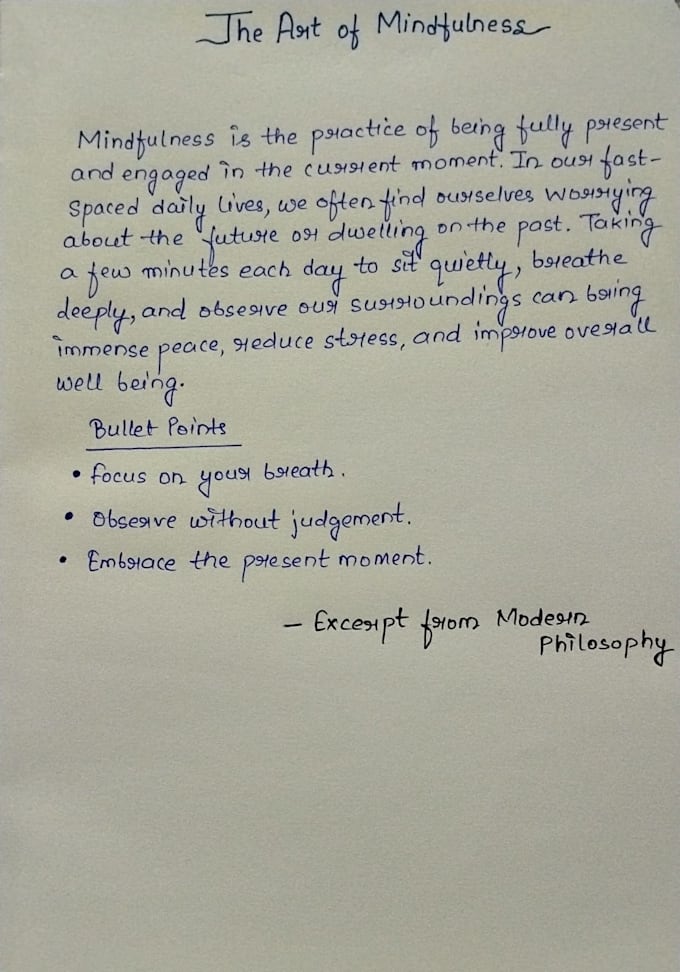 The Art of Mindfulness
Mindfulness is the practice of being fully present
and engaged in the current moment. In our fast-
spaced daily lives, we often find ourselves worrying
about the future or dwelling on the past. Taking
a few minutes each day to sit quietly, breathe
deeply, and observe our surroundings can bring
immense peace, reduce stress, and improve overall
well being.
Bullet Points
• Focus on your breath.
• Observe without judgement.
• Embrace the present moment.
– Excerpt from Modern
Philosophy